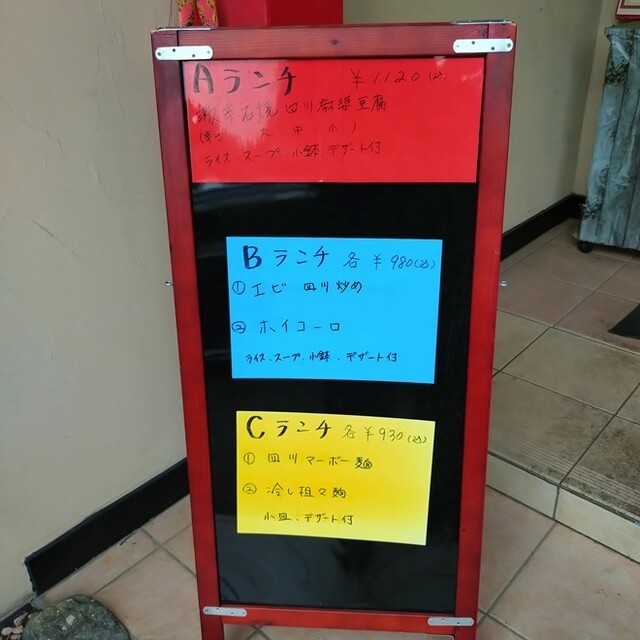 Aランチ ¥1120(込)
石焼 四川麻婆豆腐
(辛さ 大 中 小)
ライス スープ 小鉢、デザート付
Bランチ 各¥980(込)
① エビ 四川炒め
② ホイコーロ
ライス、スープ、小鉢、デザート付
Cランチ 各¥930(込)
① 四川マーボー麺
② 冷し担々麺
小皿、デザート付